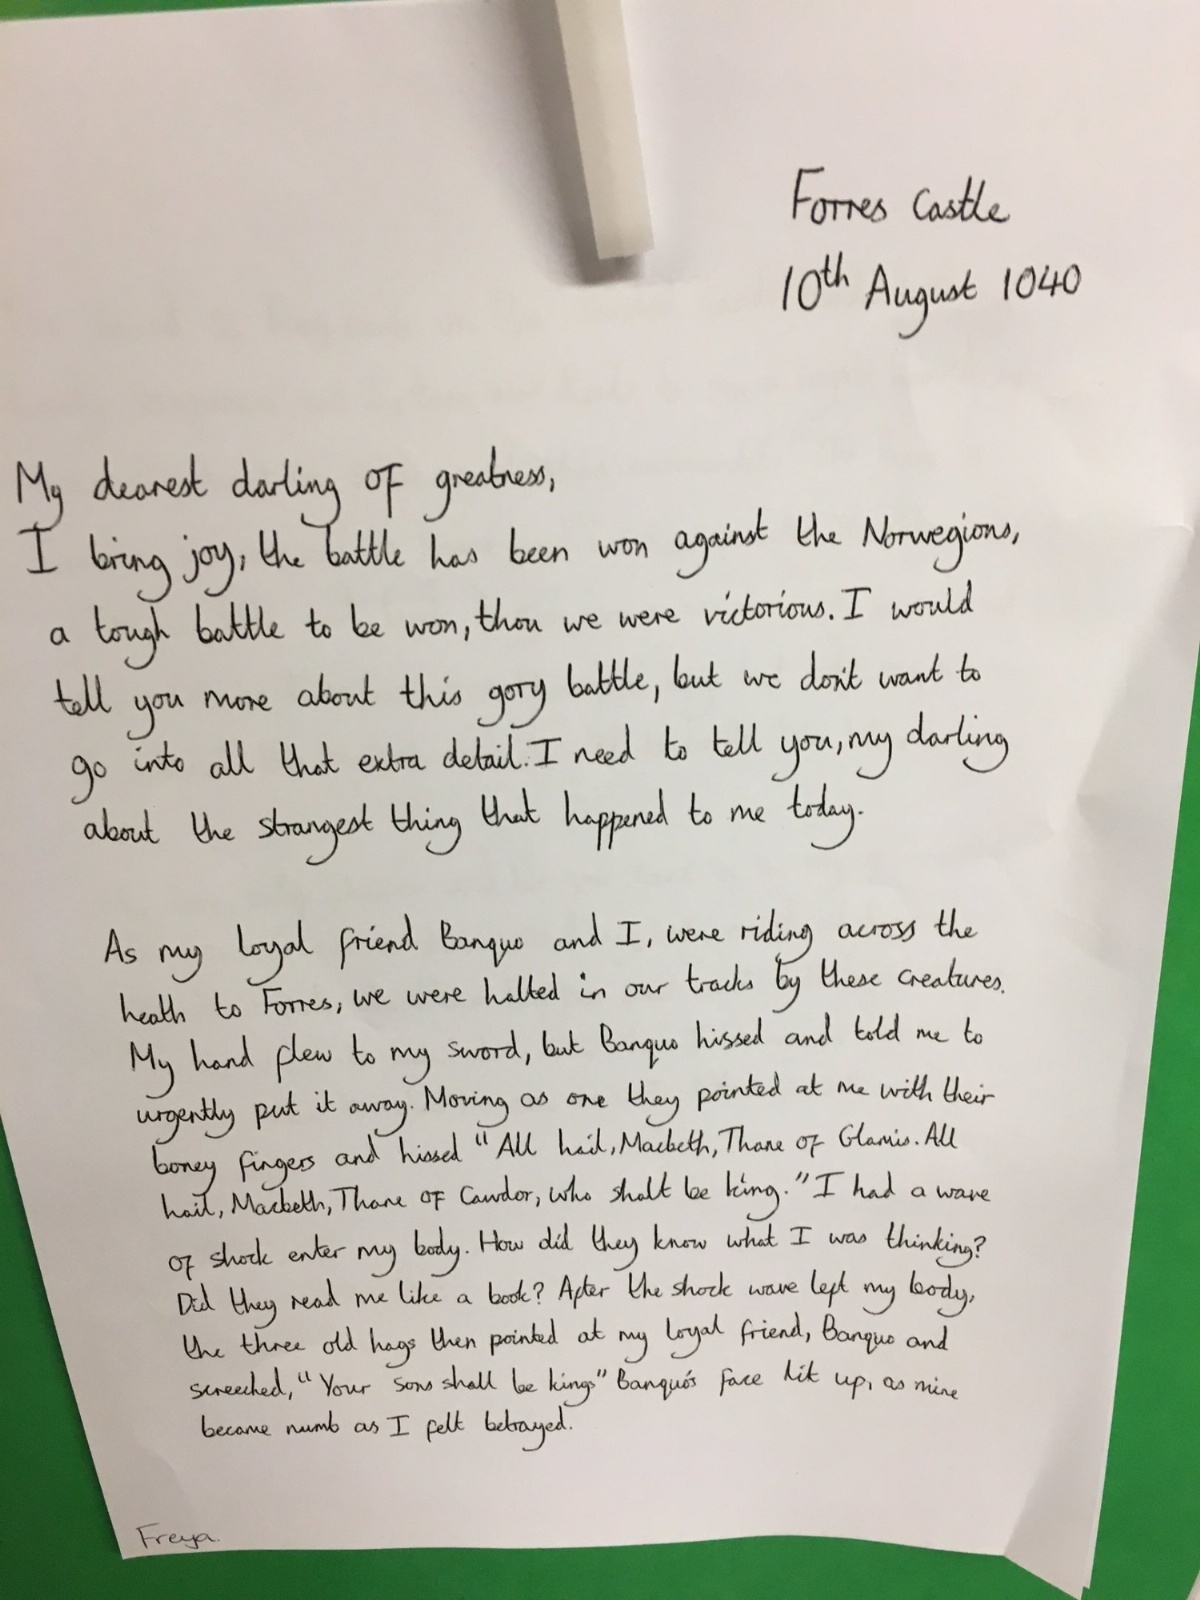 Forres Castle
10th August 1040
My dearest darling of greatness,
I bring joy, the battle has been won against the Norwegions,
a tough battle to be won, thou we were victorious. I would
tell you more about this gory battle, but we don't want to
go into all that extra detail. I need to tell you, my darling
about the strangest thing that happened to me today.
As my loyal friend Banquo and I, were riding across the
heath to Forres, we were halted in our tracks by these creatures.
My hand flew to my sword, but Banquo hissed and told me to
urgently put it away. Moving as one they pointed at me with their
boney fingers and hissed "All hail, Macbeth, Thane of Glamis. All
hail, Macbeth, Thane of Cawdor, who shalt be king." I had a wave
of shock enter my body. How did they know what I was thinking?
Did they read me like a book? After the shock wave left my body,
the three old hags then pointed at my loyal friend, Banquo and
screeched, "Your sons shall be kings" Banquo's face lit up, as mine
became numb as I felt betrayed.
Freya.